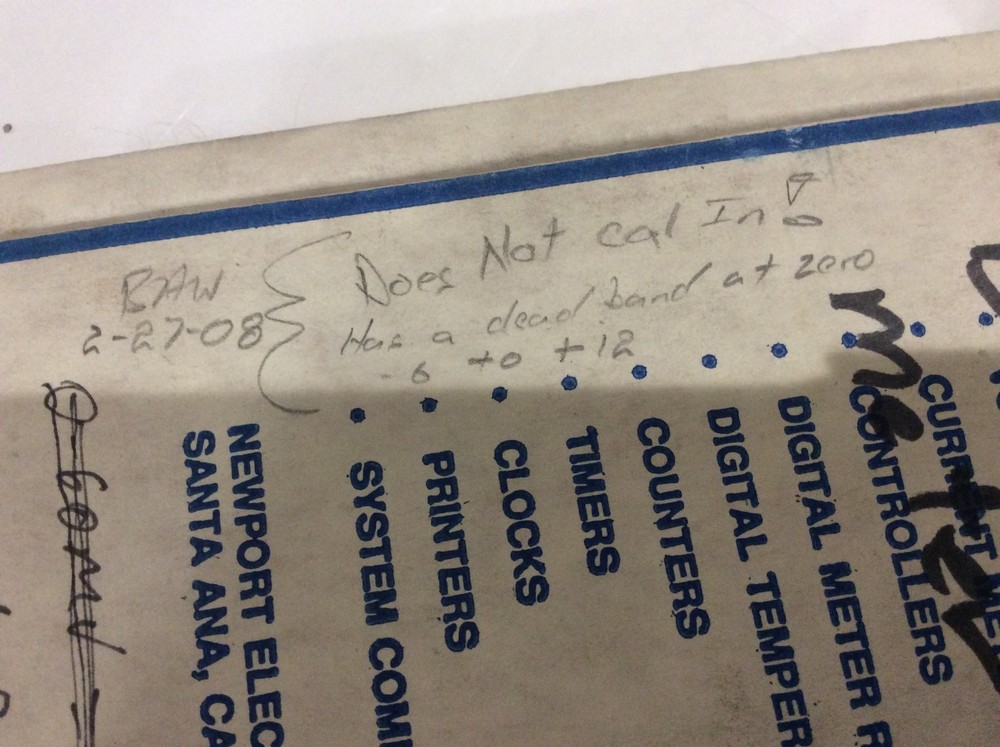 Does Not cal In!
BAW
2-27-08
Has a dead band at zero
-6 to +12
NEWPORT ELEC
SANTA ANA, CA
SYSTEM COM
PRINTERS
CLOCKS
TIMERS
COUNTERS
DIGITAL TEMPER
DIGITAL METER R
CONTROLLERS
CURRENT ME
0-60MV